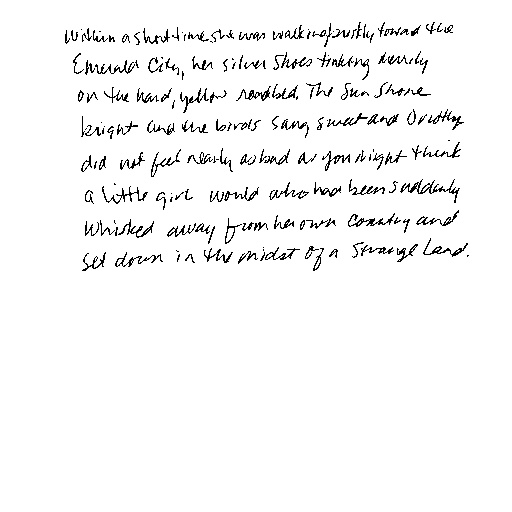 Within a short time she was walking briskly toward the
Emerald City, her silver shoes tinkling merrily
on the hard, yellow roadbed. The sun shone
bright and the birds sang sweet and Dorothy
did not feel nearly as bad as you might think
a little girl would who had been suddenly
whisked away from her own country and
set down in the midst of a strange land.